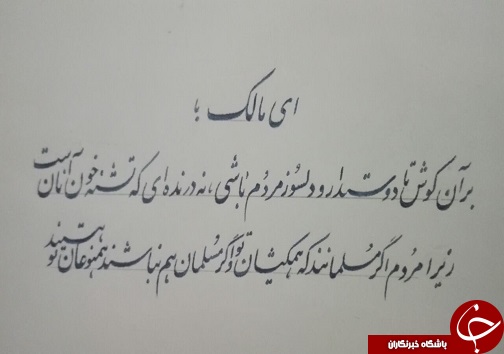 ای مالک ؛
بر آن کوش تا دوستدار و دلسوز مردم باشی، نه درنده‌ای که تشنه خون آنان است
زیرا مردم اگر مسلمانند که همکیشان تو و اگر مسلمان هم نباشند همنوعان تو هستند
باشگاه خبرنگاران